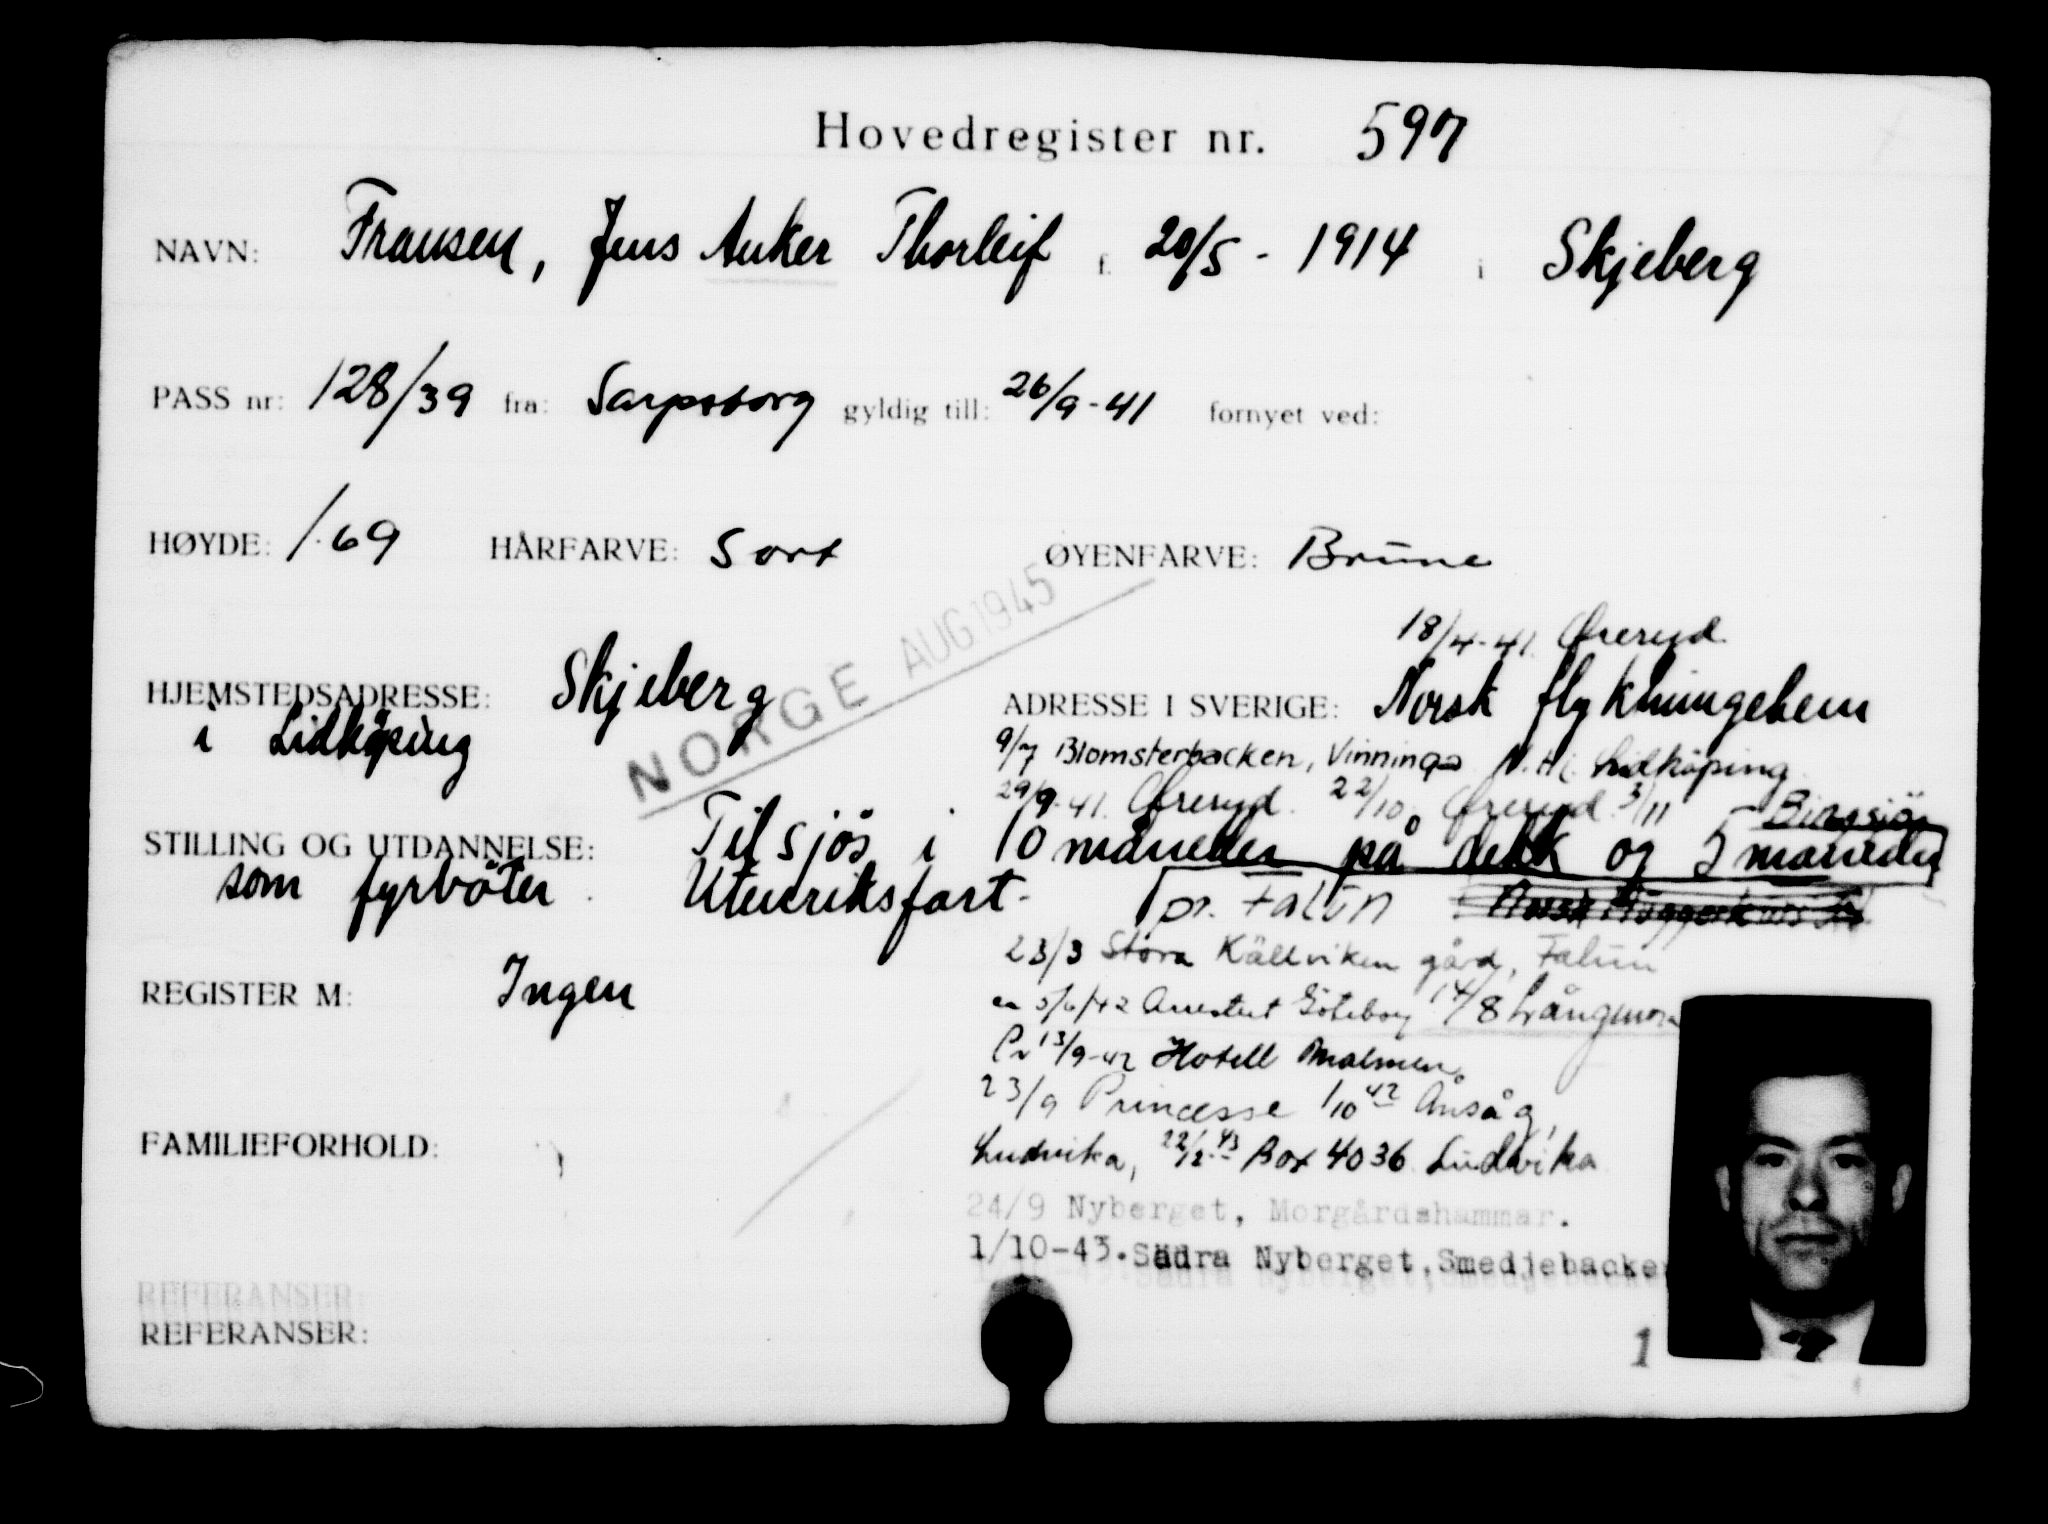 Hovedregister nr. 597
NAVN: Fransen, Jens Anker Thorleif f. 20/5 - 1914 i Skjeberg
PASS nr: 128/39 fra: Sarpsborg gyldig till: 26/9-41 fornyet ved:
HØYDE: 1.69 HÅRFARVE: Sort ØYENFARVE: Brune
NORGE AUG 1945
18/4-41. Øreryd
HJEMSTEDSADRESSE: Skjeberg ADRESSE I SVERIGE: Norsk flyktningehem
i Lidköping
9/7 Blomsterbacken, Vinninga N.H. Lidköping
29/9-41. Øreryd. 22/10 Øreryd 3/11 Bingsjö
STILLING OG UTDANNELSE: Til sjös i 10 måneder på dekk og 5 måneder
som fyrböter. Utenriksfart.
pr. Falun Norsk Huggerkurs
23/3 Stora Källviken gård, Falun
REGISTER M: Ingen
5/6/42 Arrestert Göteborg 14/8 Långmora
Pr 13/9-42 Hotell Malmen
23/9 Princesse 1/10 42 Ånsåg,
FAMILIEFORHOLD:
Ludvika, 22/2-43 Box 4036 Ludvika
24/9 Nyberget, Morgårdshammar.
1/10-43. Södra Nyberget, Smedjebacken
REFERANSER:
REFERANSER:
1